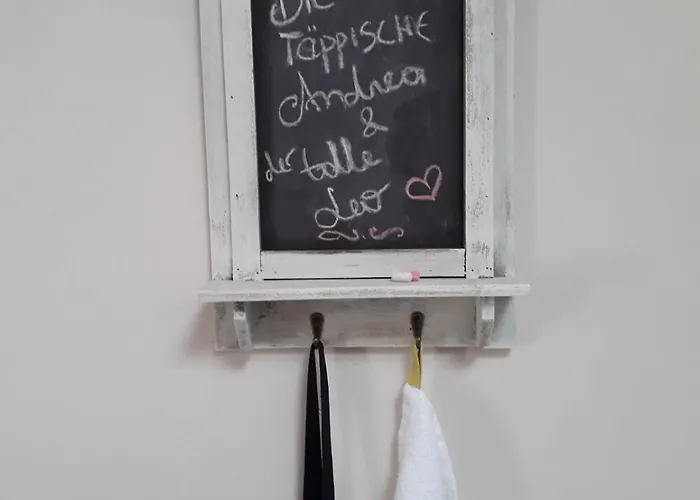 Die
TÄPPISCHE
Andrea
&
der tolle
Leo